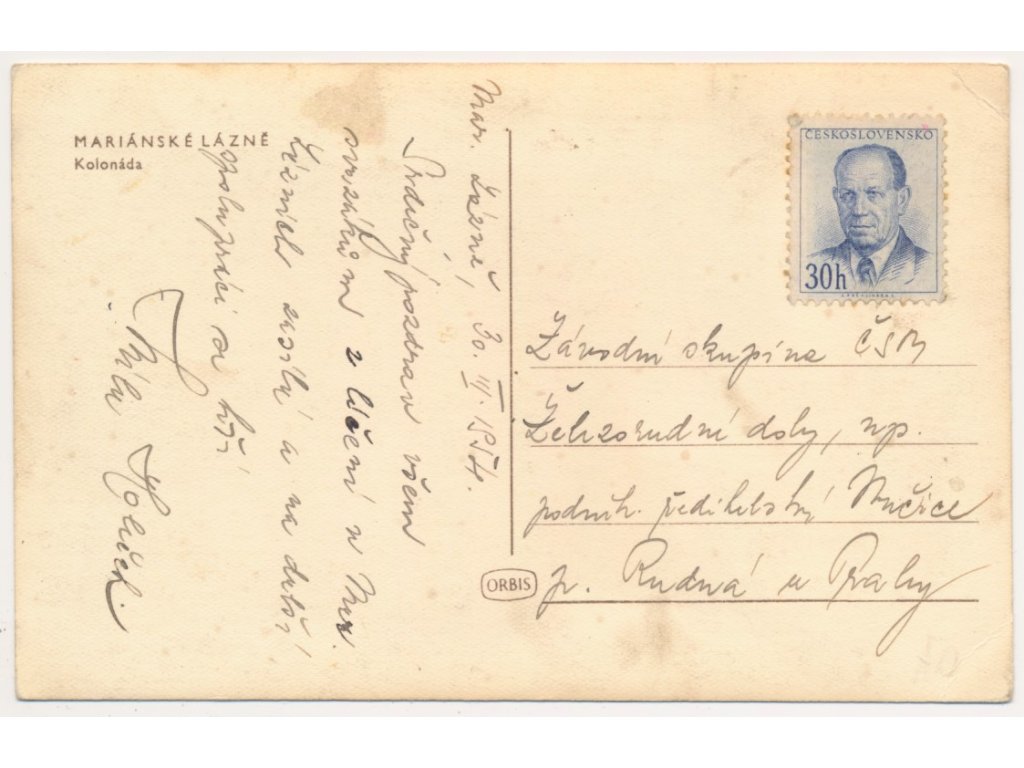 MARIÁNSKÉ LÁZNĚ
Kolonáda
Mar. Lázně, 30. III. 1954.
Srdečný pozdrav všem
svazákům z léčení v Mar.
Lázních zasílá a na další
spolupráci se těší
Míla
ČESKOSLOVENSKO
30h
Závodní skupina ČSM
Železorudné doly, n.p.
podnik. ředitelství Nučice
p. Rudná u Prahy
ORBIS